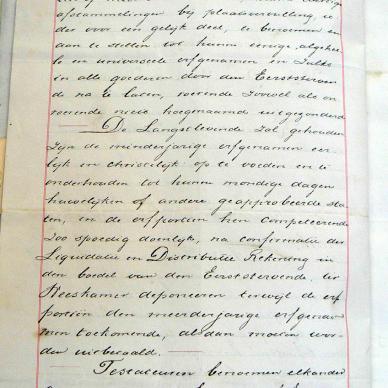 afstammelingen bij plaatsvervulling, ie
der voor een gelijk deel, te benoemen en
aan te stellen tot hunne eenige, algehee
le en universeele erfgenamen en zulks
in alle goederen door den Eerststerven
de na te laten, roerende zoowel als on
roerende niets hoegenaamd uitgezonderd
De Langstlevende zal gehouden
zijn de minderjarige erfgenamen eer
lijk en christelijk op te voeden en te
onderhouden tot hunne mondige dagen
huwelijken of andere geapprobeerde sta
ten, en de erfportien hen competeerende
zoo spoedig doenlijk, na confirmatie der
Liquidatie en Distributie Rekening in
den boedel van den Eerststervende, ter
Weeskamer deponeren terwijl de erf
portien den meerderjarige erfgenaa
men toekomende, als dan moeten wor
den uitbetaald.
Testateuren benoemen elkander